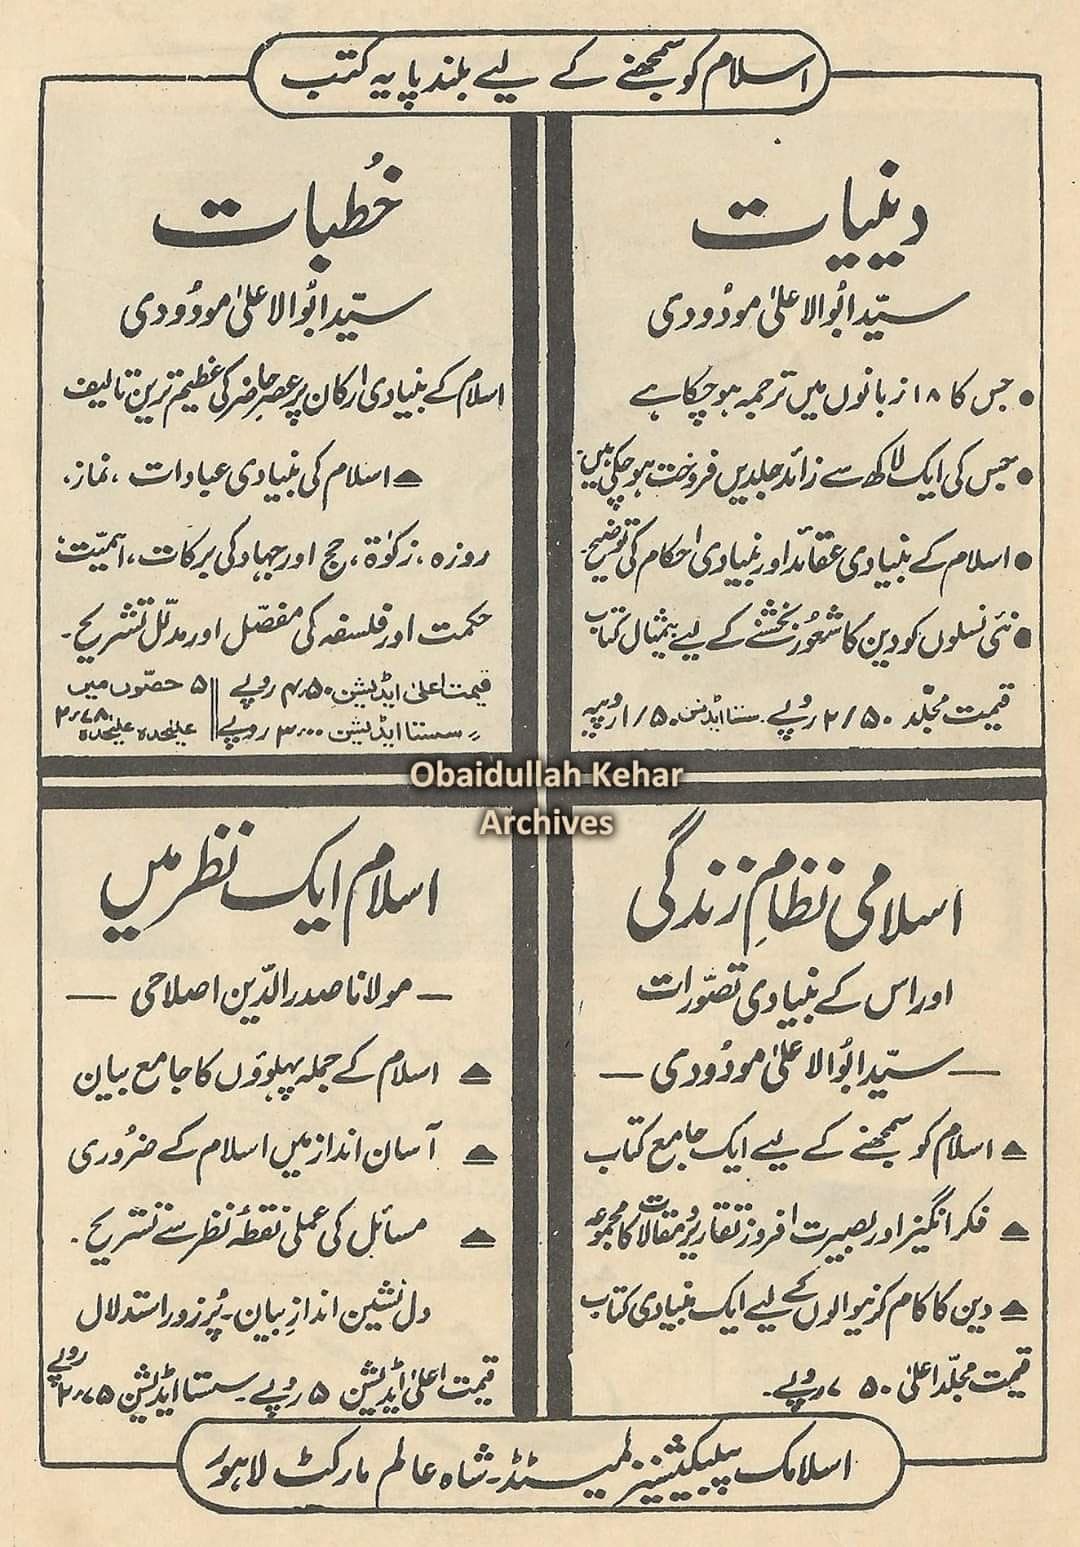 اسلام کو سمجھنے کے لیے بلند پایہ کتب
دینیات
سیّد ابُوالاعلیٰ مودُودی
• جس کا ۱۸ زبانوں میں ترجمہ ہو چکا ہے
• جس کی ایک لاکھ سے زائد جلدیں فروخت ہو چکی ہیں۔
• اسلام کے بنیادی عقائد اور بنیادی احکام کی توضیح۔
• نئی نسلوں کو دین کا شعور بخشنے کے لیے بیمثال کتاب
قیمت مجلّد ۲/۵۰ روپے۔ سستا ایڈیشن ۱/۵۰ روپیہ
خُطبات
سیّد ابُوالاعلیٰ مودُودی
اسلام کے بنیادی ارکان پر عصرِ حاضر کی عظیم ترین تالیف
اسلام کی بنیادی عبادات ، نماز،
روزہ ، زکوٰۃ ، حج اور جہاد کی برکات ، اہمیّت
حکمت اور فلسفہ کی مفصّل اور مدلّل تشریح۔
قیمت اعلیٰ ایڈیشن ۴٫۵۰ روپے ‖ ۵ حصّوں میں
〃 سستا ایڈیشن ۳٫۰۰ روپے ‖ علیٰحدہ علیٰحدہ ۲٫۷۸
Obaidullah Kehar
Archives
اسلامی نظامِ زندگی
اور اس کے بنیادی تصوّرات
— سیّد ابُوالاعلیٰ مودُودی —
اسلام کو سمجھنے کے لیے ایک جامع کتاب
فکر انگیز اور بصیرت افروز تقاریر و مقالات کا مجموعہ
دین کا کام کرنیوالوں کے لیے ایک بنیادی کتاب
قیمت مجلّد اعلیٰ ۵۰ ۷ روپے۔
اسلام ایک نظر میں
— مولانا صدر الدّین اصلاحی —
اسلام کے جملہ پہلوؤں کا جامع بیان
آسان انداز میں اسلام کے ضرُوری
مسائل کی عملی نقطۂ نظر سے تشریح۔
دل نشین اندازِ بیان۔ پُرزور استدلال
قیمت اعلیٰ ایڈیشن ۵ روپے۔ سستا ایڈیشن ۲٫۷۵ روپے
اسلامک پبلیکیشنز لمیٹڈ۔ شاہ عالم مارکٹ لاہور